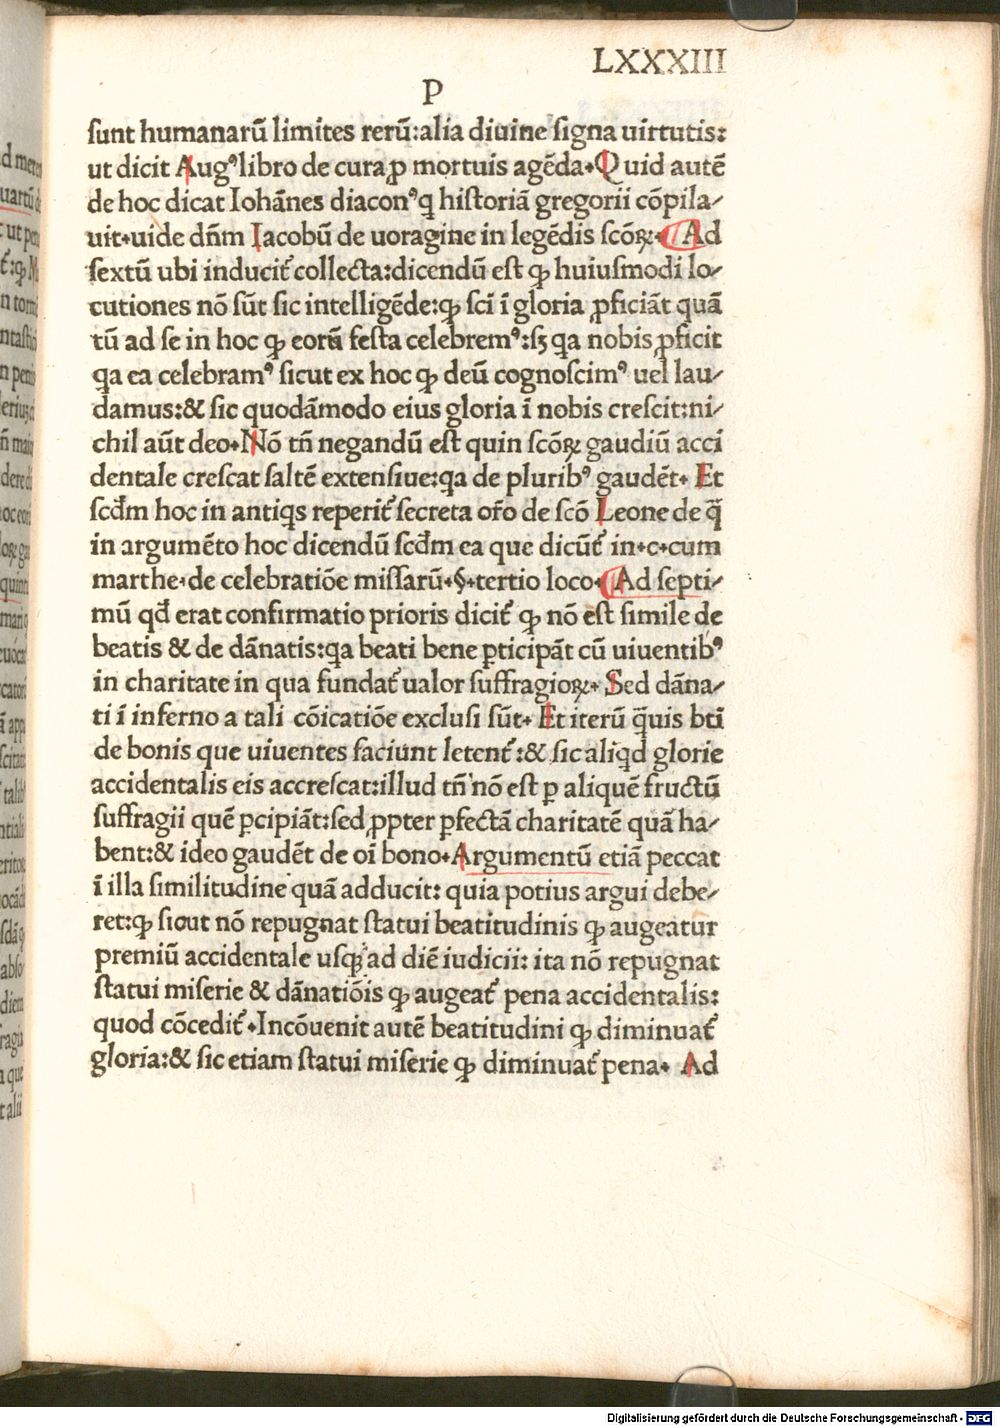 LXXXIII
P
sunt humanarū limites rerū:alia diuine signa uirtutis:
ut dicit Augꝰ libro de cura ꝓ mortuis agēda. Quid autē
de hoc dicat Iohānes diaconꝰ q̇ historiā gregorii cōpila⸗
uit. uide dn̄m Iacobū de uoragine in legēdis scōꝝ. Ad
sextū ubi inducit᷑ collecta:dicendū est ꝙ huiusmodi lo⸗
cutiones nō sūt sic intelligēde:ꝙ sci̅ i̅ gloria ꝓficiāt quā
tū ad se in hoc ꝙ eorū festa celebremꝰ:sꝫ qa nobis ꝓficit
qa ea celebramꝰ sicut ex hoc ꝙ deū cognoscimꝰ uel lau⸗
damus:& sic quodāmodo eius gloria i̅ nobis crescit:ni⸗
chil aūt deo. Nō tn̄ negandū est quin scōꝝ gaudiū acci
dentale crescat saltē extensiue:qa de pluribꝰ gaudēt. Et
scd̄m hoc in antiqs reperit᷑ secreta or̄o de scō Leone de q̄
in argumēto hoc dicendū scd̄m ea que dicūt᷑ in.c.cum
marthe.de celebratiōe missarū.§.tertio loco. Ad septi⸗
mū qd̄ erat confirmatio prioris dicit᷑ ꝙ nō est simile de
beatis & de dānatis:qa beati bene ꝑticipāt cū uiuentibꝰ
in charitate in qua fundat᷑ ualor suffragioꝝ. Sed dāna⸗
ti i̅ inferno a tali cōicatiōe exclusi sūt. Et iterū q̄uis bti̅
de bonis que uiuentes faciunt letent᷑:& sic aliqd glorie
accidentalis eis accrescat:illud tn̄ nō est ꝑ aliquē fructū
suffragii quē ꝑcipiāt:sed ꝓpter ꝑfectā charitatē quā ha⸗
bent:& ideo gaudēt de oi̅ bono. Argumentū etiā peccat
i̅ illa similitudine quā adducit: quia potius argui debe⸗
ret:ꝙ sicut nō repugnat statui beatitudinis ꝙ augeatur
premiū accidentale usqꝫ ad diē iudicii: ita nō repugnat
statui miserie & dānatiōis ꝙ augeat᷑ pena accidentalis:
quod cōcedit᷑. Incōuenit autē beatitudini ꝙ diminuat᷑
gloria:& sic etiam statui miserie ꝙ diminuat᷑ pena. Ad
Digitalisierung gefördert durch die Deutsche Forschungsgemeinschaft - DFG